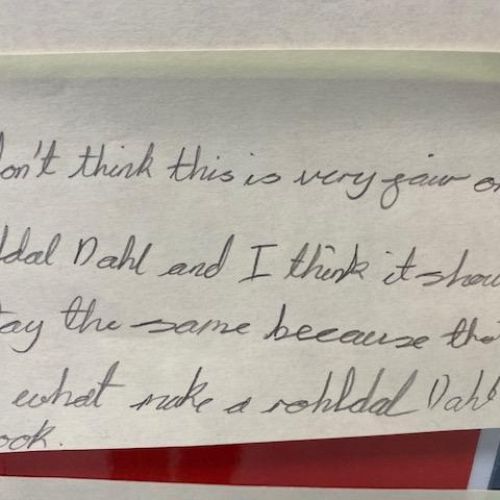 on't think this is very fair on
ldal Dahl and I think it shou
tay the same because tha
what make a rohldal Dahl
ook.